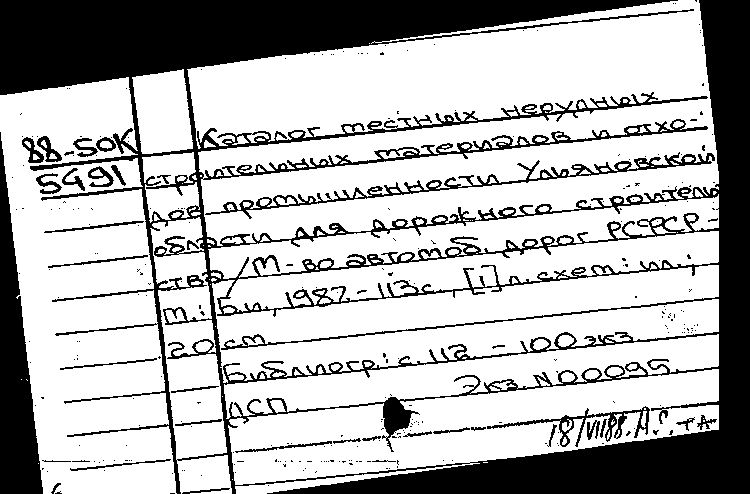 88-50К
5491
Каталог местных нерудных
строительных материалов и отхо-
дов промышленности Ульяновской
области для дорожного строитель-
ства / М-во автомоб. дорог РСФСР. -
М.: Б.и., 1987. - 113 с., [1] л. схем: ил.;
20 см.
Библиогр.: с. 112. - 100 экз.
ДСП. Экз. N 00095.
18/VII88.